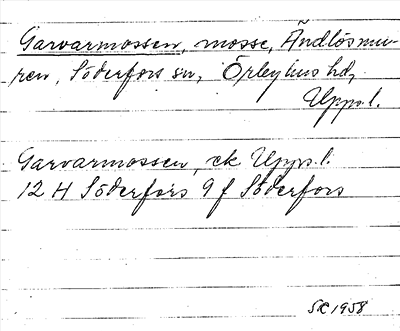 Garvarmossen, mosse, Ändlösmu-
ren, Söderfors sn, Örbyhus hd,
Upps.l.
Garvarmossen, ek Upps.l.
12 H Söderfors 9 f Söderfors
SK 1958